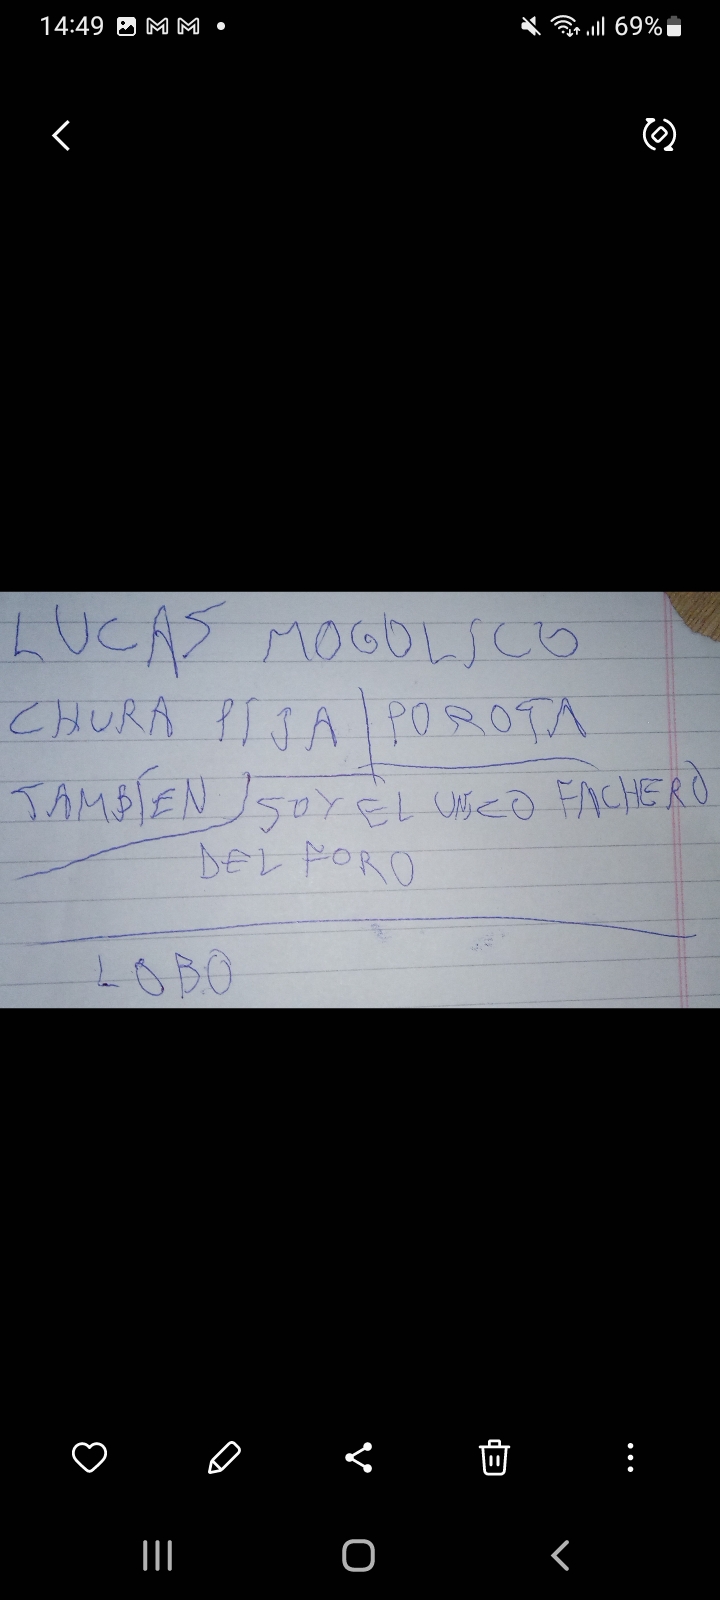 14:49 69%
LUCAS MOGOLICO
CHURA PIJA POROTA
TAMBIEN SOY EL UNICO FACHERO
DEL FORO
LOBO